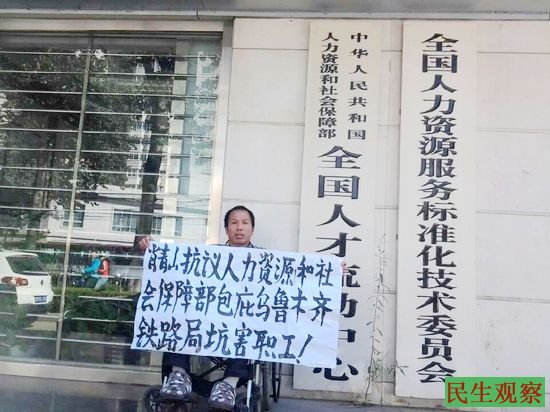 全国人力资源服务标准化技术委员会
中华人民共和国
人力资源和社会保障部
全国人才流动中心
肖青山抗议人力资源和社
会保障部包庇乌鲁木齐
铁路局坑害职工!
民生观察